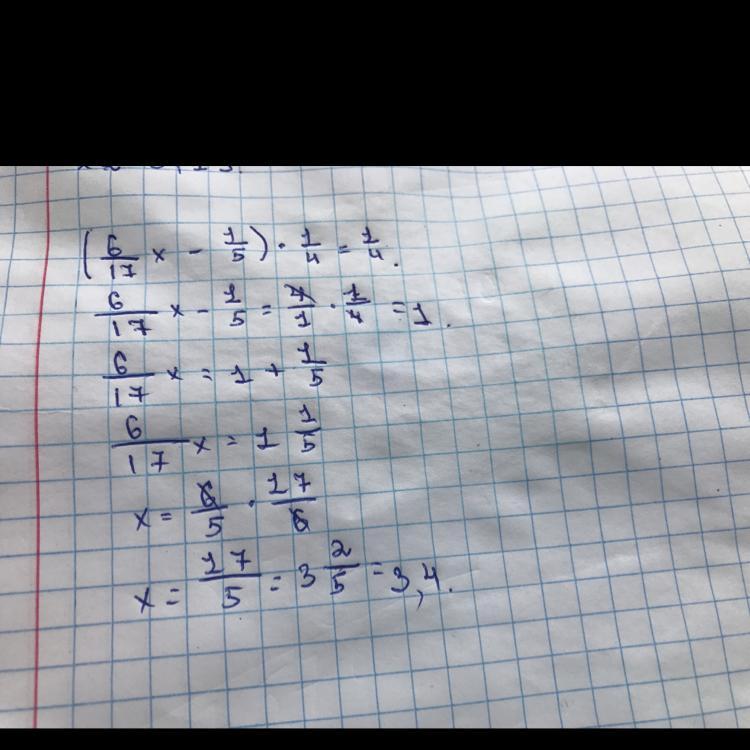 (6/17 x - 1/5) · 1/4 = 1/4.
6/17 x - 1/5 = 4/1 · 1/4 = 1.
6/17 x = 1 + 1/5
6/17 x = 1 1/5
x = 6/5 · 17/6
x = 17/5 = 3 2/5 = 3,4.